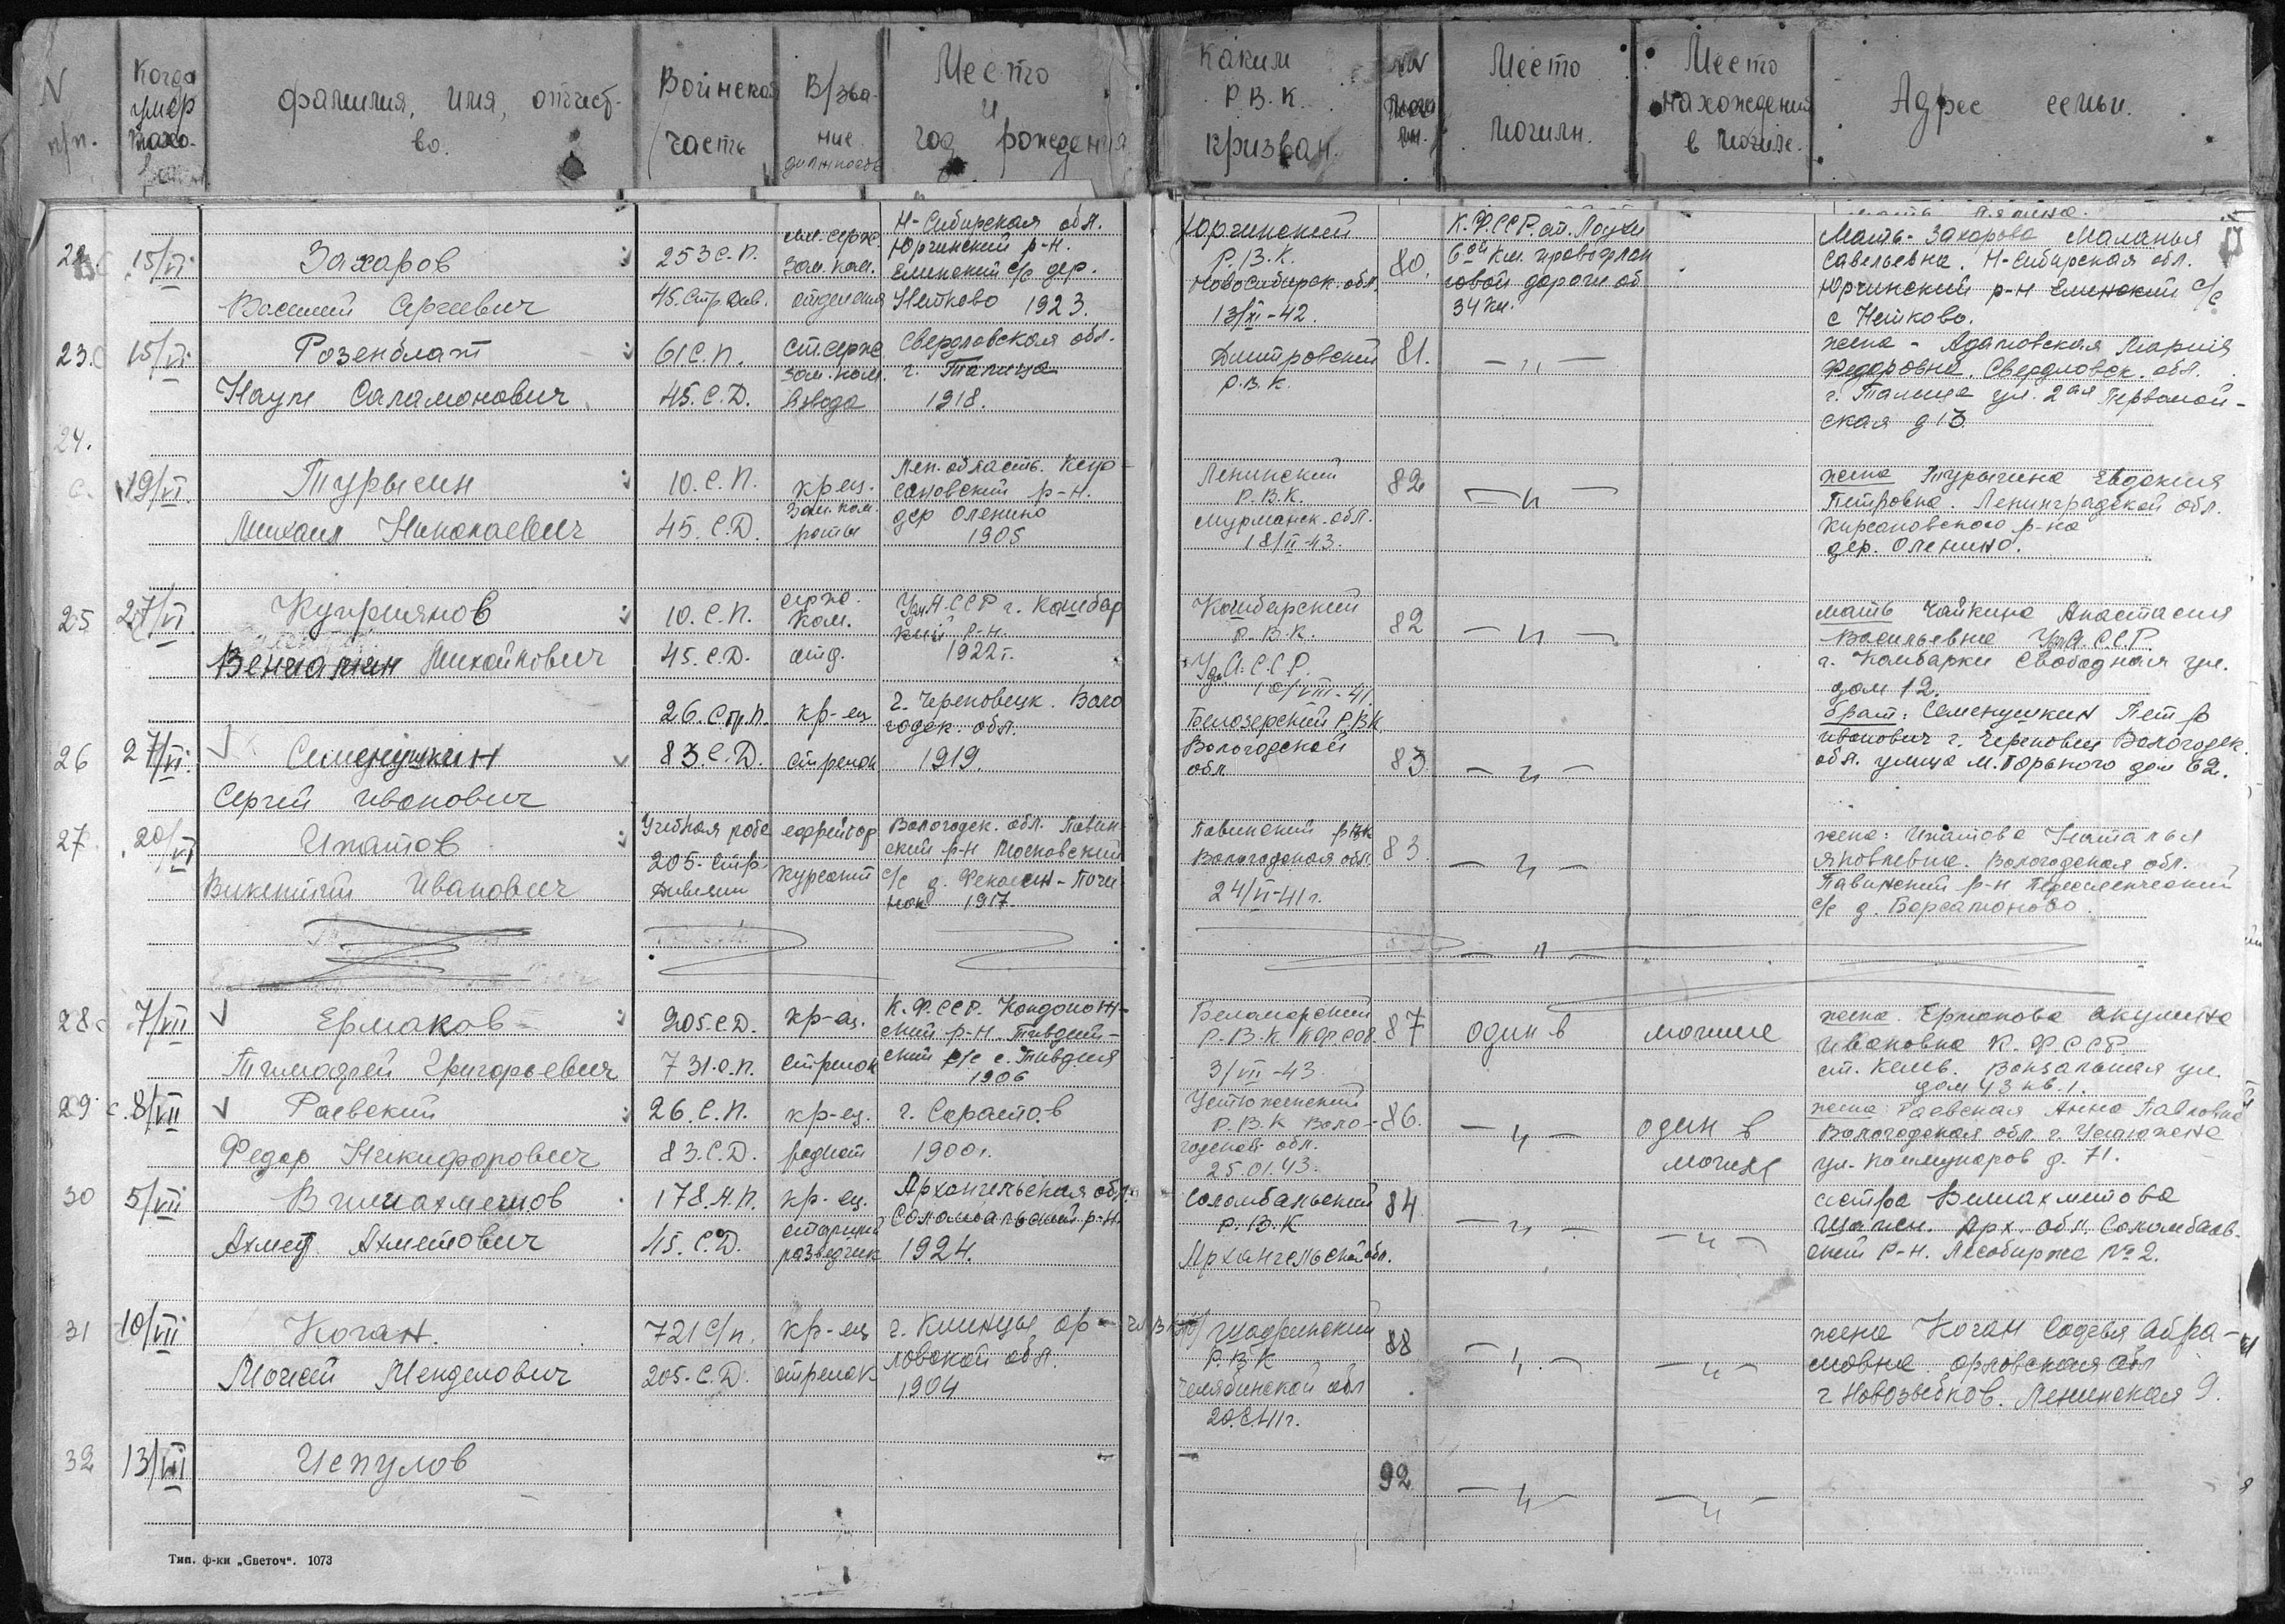 N п/п.
Когда умер похо-
фамилия, имя, отчест-во.
Воинская часть
В/зва-ние должность
Место и год рождения
Каким Р.В.К. призван.
Место могилы.
Место нахождения в могиле.
Адрес семьи.
22 15/VI Захаров
Василий Сергеевич
253 с.п.
45. Стр. див.
мл. серж.
зам. ком.
отделения
Н-Сибирская обл.
Юргинский р-н.
Елинский с/с дер.
Нитково 1923.
Юргинский
Р.В.К.
Новосибирск. обл.
13/XI-42.
80.
К.Ф.ССР. ст. Лоухи
6ой км.
34 км.
Мать - Захарова Маланья
Савельевна. Н-Сибирская обл.
Юргинский р-н Елинский с/с
с Нитково.
23. 15/VI Розенблат
Наум Саламонович
61 С.П.
45. С.Д.
ст. серж.
зам. ком.
взвода
Свердловская обл.
г. Талица
1918.
Дмитровский
Р.В.К.
81.
— " —
жена - Адамовская Мария
Федоровна. Свердловск. обл.
г. Талица ул. 2ая Первомай-
ская д 13
24.
19/VI. Турыгин
Михаил Николаевич
10. С.П.
45. С.Д.
кр-ец.
зам. ком.
роты
Лен. область.
р-н.
дер Оленино
1905
Ленинский
Р.В.К.
Мурманск. обл.
18/II-43.
82
— " —
жена Турыгина Евдокия
Петровна. Ленинградской обл.
Кирсановского р-на
дер. Оленино.
25 27/VI. Куприянов
Вениамин Михайлович
10. С.П.
45. С.Д.
серж.
ком.
отд.
Удм.А.ССР г. Камбар
кий р-н.
1922 г.
Камбарский
Р.В.К.
Удм.А.С.С.Р.
10/VIII-41.
82
— " —
мать Чайкина Анастасия
Васильевна Удм.А.С.С.Р.
г. Камбарки Свободная ул.
дом 12.
26 27/VI. Семенушкин
Сергей Иванович
26. Стр.п.
83. С.Д.
кр-ец
стрелок
г. Череповецк. Воло
годск. обл.
1919.
Белозерский Р.В.К
Вологодской
обл.
83
— " —
брат: Семенушкин Петр
Иванович г. Череповец Вологодск.
обл. улица М. Горького дом 62.
27 20/VI Ипатов
Викентий Иванович
Учебная рота
205. Стр.
Дивизии
ефрейтор
курсант
Вологодск. обл. Павин
ский р-н
с/с д. - Почи
нок 1917.
Павинский рвк
Вологодская обл.
24/VI-41 г.
83.
— " —
жена: Ипатова Наталья
Яковлевна. Вологодская обл.
Павинский р-н
с/с д.
— " —
28 7/VII Ермаков
Тимофей Григорьевич
205. С.Д.
731. о.п.
кр-ец.
стрелок
К.Ф.ССР. Кондопож-
ский р-н. Тивдий-
ский с/с с. Тивдия
1906
Беломорский
Р.В.К КФССР.
3/VII-43.
87
один в могиле
жена Ермакова Акулина
Ивановна К.Ф.ССР.
ст. Кемь. Вокзальная ул.
дом 43 кв. 1.
29 8/VII Раевский
Федор Никифорович
26. С.П.
83. С.Д.
кр-ец.
радист
г. Саратов
1900 г.
Устюженский
Р.В.К Воло-
годской обл.
25.01.43.
86.
— " —
один в
могиле
жена Раевская Анна Павловна
Вологодская обл. г. Устюжена
ул. Коммунаров д. 71.
30 5/VII Вимахметов
Ахмет Ахметович
178. А.П.
45. С.Д.
кр-ец.
старший
разведчик
Архангельская обл.
Соломбальский р-н.
1924.
Соломбальский
Р.В.К
Архангельской обл.
84
— " —
— " —
сестра Вимахметова
Арх. обл. Соломбаль-
ский р-н. Лесобиржа №2.
31 10/VII Коган.
Моисей Менделович
721 с/п.
205. С.Д.
кр-ец
стрелок
г. Клинцы Ор-
ловской обл.
1904
Шадринский
Р.В.К
Челябинской обл
88
— " —
— " —
жена Коган Софья Абра-
мовна. Орловская обл
г. Новозыбков. Ленинская 9.
32 13/VII Испулов
—
—
92
— " —
— " —
Тип. ф-ки „Светоч“. 1073